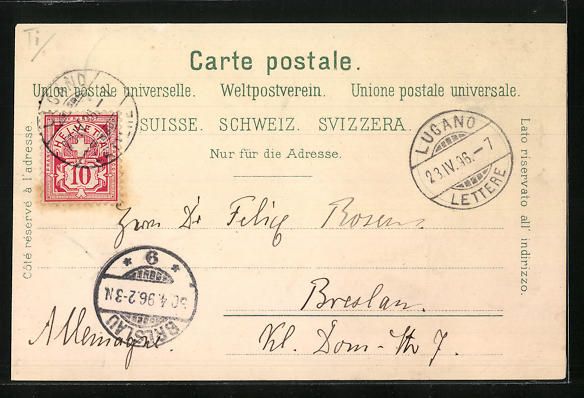 Ti
Carte postale.
Union postale universelle. Weltpostverein. Unione postale universale.
SUISSE. SCHWEIZ. SVIZZERA.
Nur für die Adresse.
Côté réservé à l'adresse.
Lato riservato all' indirizzo.
HELVETIA
10
LUGANO
LUGANO
23.IV.96.–7
LETTERE
Herrn Dr Felix Rosen
* 6 *
30.4.96.2-3N.
BRESLAU
Breslau.
Allemagne.
Kl. Dom-Str 7.